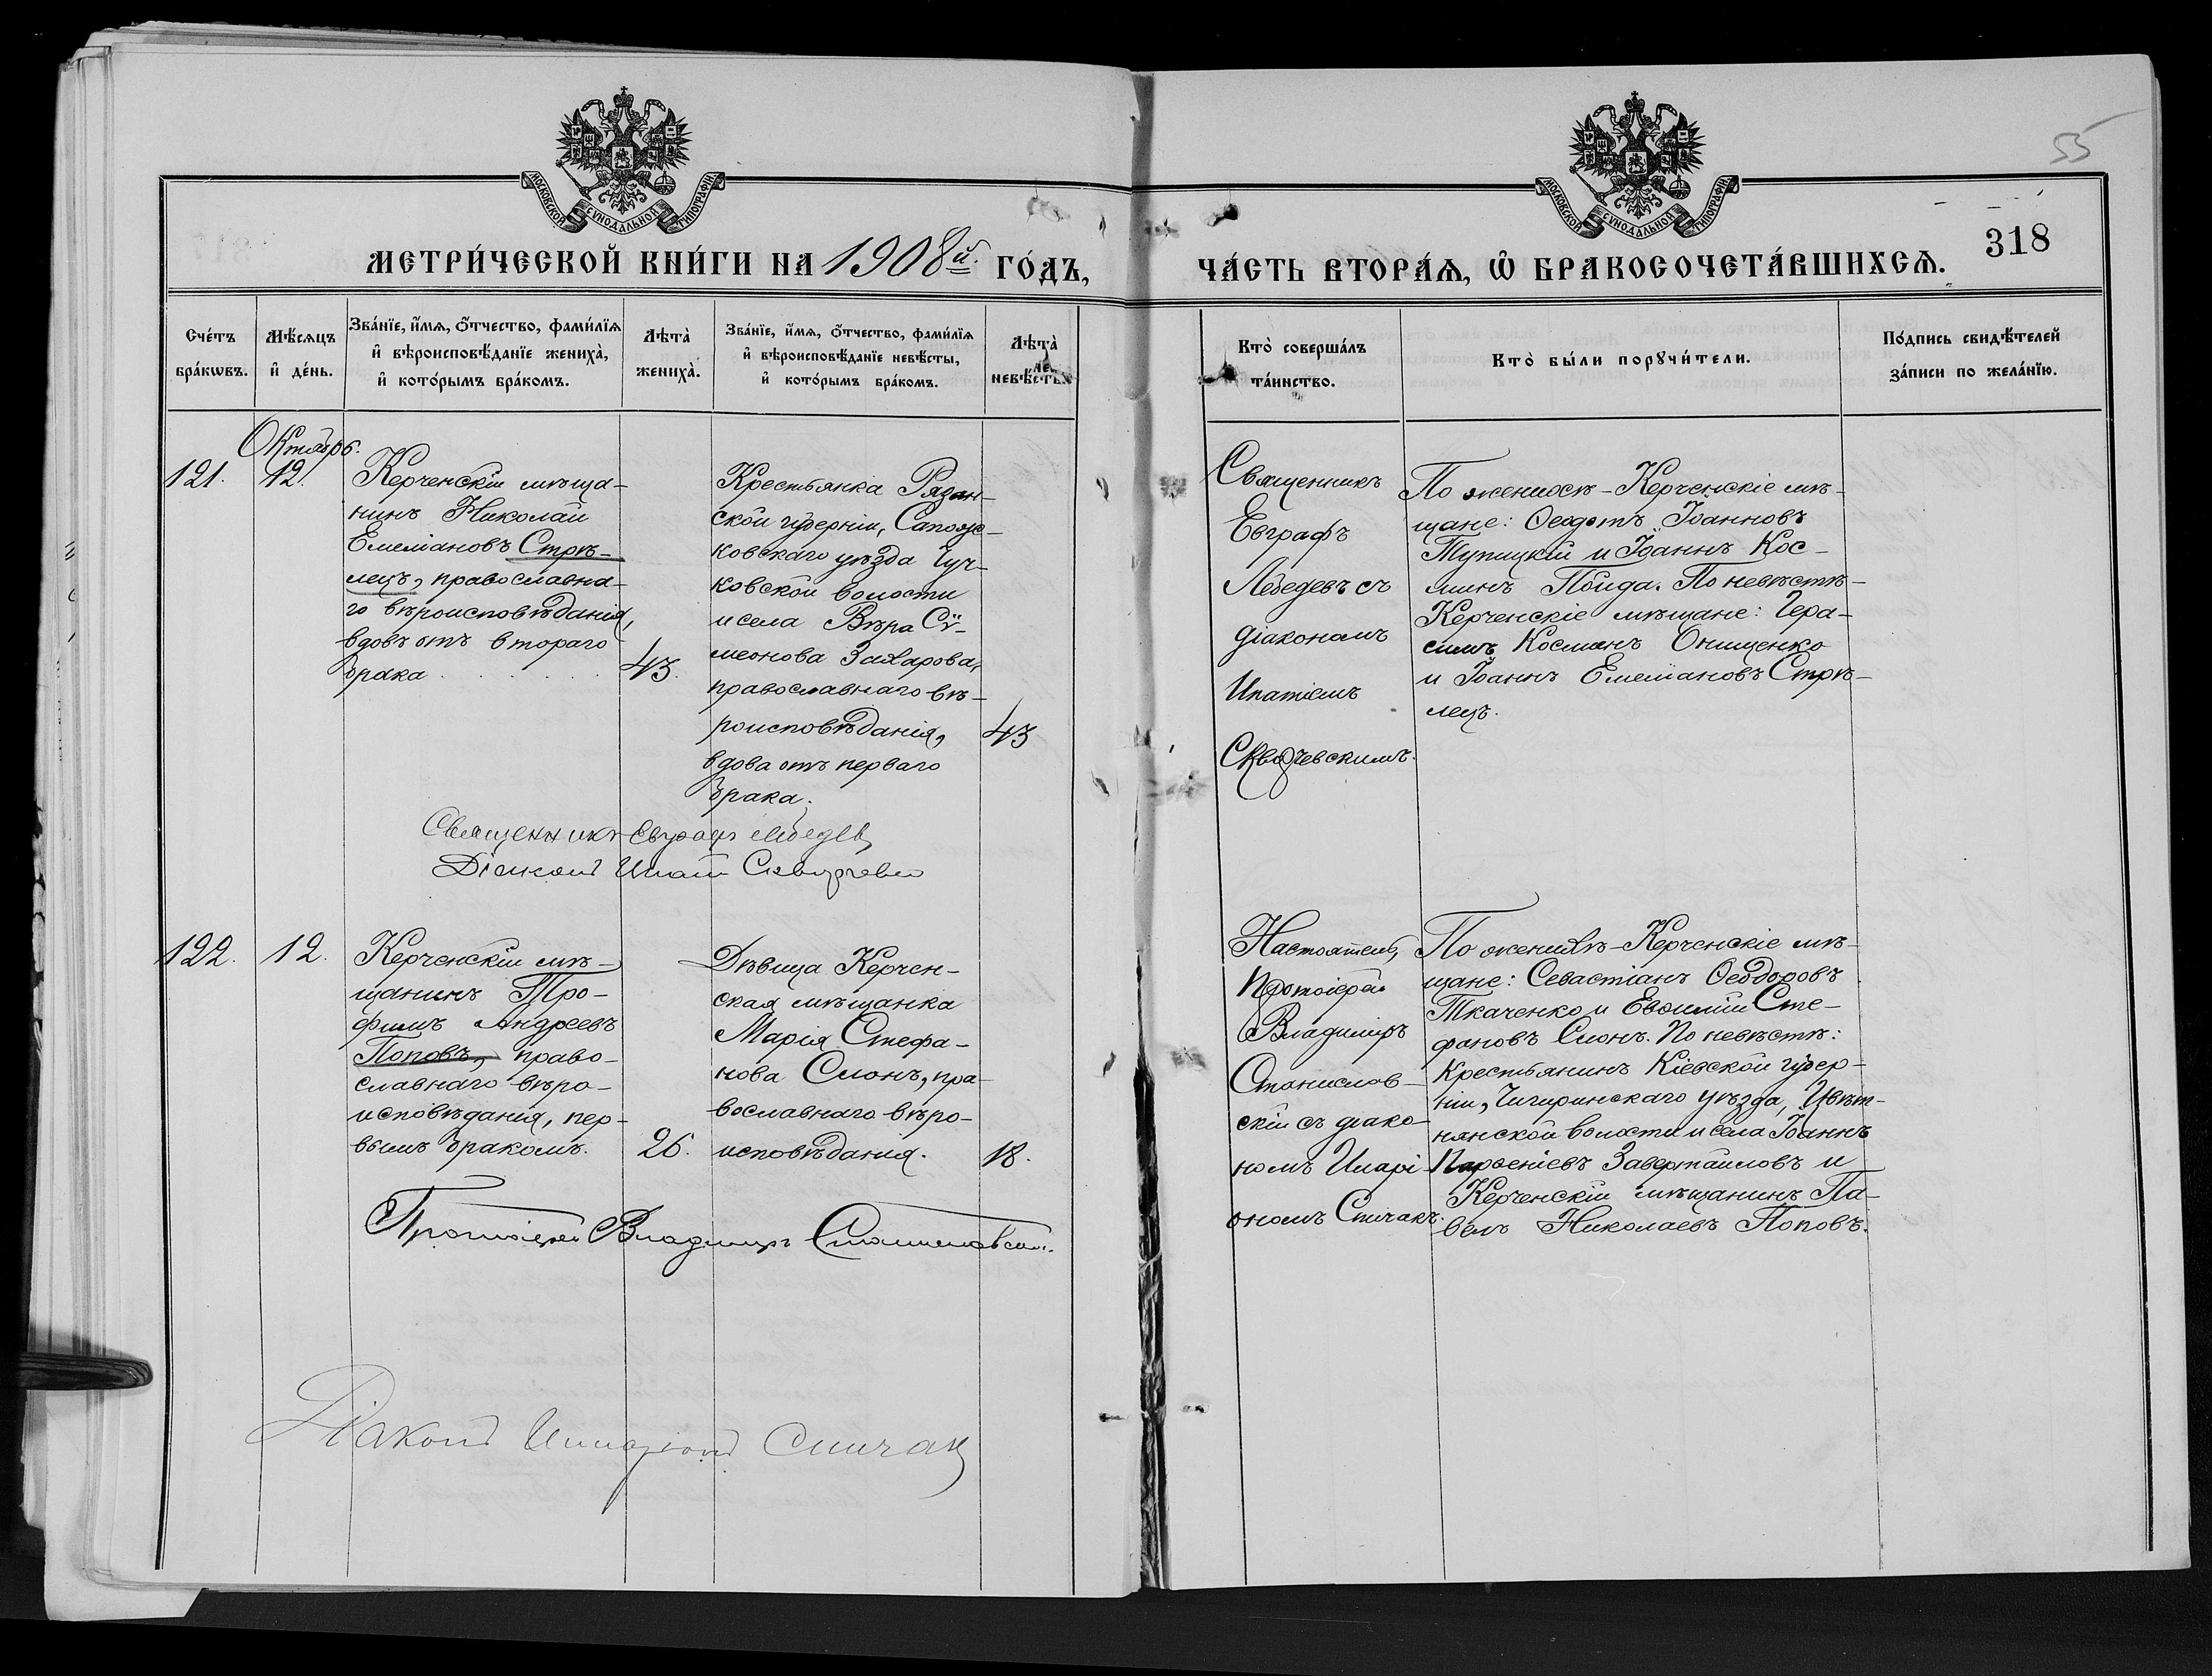 МОСКОВСКОЙ СѴНОДАЛЬНОЙ ТИПОГРАФІИ
МОСКОВСКОЙ СѴНОДАЛЬНОЙ ТИПОГРАФІИ
55
318
МЕТРИ́ЧЕСКОЙ КНИ́ГИ НА 1908й. ГО́ДЪ,
ЧА́СТЬ ВТОРА́Ѧ, Ѽ БРАКОСОЧЕТА́ВШИХСѦ.
Сче́тъ
бра́кѡвъ.
Мѣ́сяцъ
и҆ де́нь.
Зва́нїе, и҆́мѧ, ѻ҆́тчество, фами́лїѧ
и҆ вѣроисповѣ́данїе жениха̀,
и҆ кото́рымъ бра́комъ.
Лѣта̀
жениха̀.
Зва́нїе, и҆́мѧ, ѻ҆́тчество, фами́лїѧ
и҆ вѣроисповѣ́данїе невѣ́сты,
и҆ кото́рымъ бра́комъ.
Лѣта̀
невѣ́сты.
Кто̀ соверша́лъ
та́инство.
Кто̀ бы́ли порꙋчи́тели.
По́дпись свидѣ́телей
за́писи по жела́нїю.
Октябрь.
121.
12.
Керченскій мѣща-
нинъ Николай
Емеліановъ Стрѣ-
лецъ, православна-
го вѣроисповѣданія,
вдовъ отъ втораго
брака . . . . . .
43.
Крестьянка Рязан-
ской губерніи, Сапож-
ковскаго уѣзда Чуч-
ковской волости
и села Вѣра Сѵ-
меонова Захарова,
православнаго вѣ-
роисповѣданія,
вдова отъ перваго
брака.
43
Священникъ
Евграфъ
Лебедевъ съ
діакономъ
Ипатіемъ
По женихѣ - Керченскіе мѣ-
щане: Ѳеодотъ Іоанновъ
Тупицкій и Іоаннъ Кос-
минъ Пойда. По невѣстѣ -
Керченскіе мѣщане: Гера-
симъ Косминъ Онищенко
и Іоаннъ Емеліановъ Стрѣ-
лецъ.
Священникъ Евграфъ Лебедевъ
Діаконъ Ипатій
122.
12.
Керченскій мѣ-
щанинъ Тро-
фимъ Андреевъ
Поповъ, право-
славнаго вѣро-
исповѣданія, пер-
вымъ бракомъ.
26.
Дѣвица Керчен-
ская мѣщанка
Марія Стефа-
нова Слонъ, пра-
вославнаго вѣро-
исповѣданія.
18.
Настоятель,
Протоіерей
Владиміръ
Станислав-
скій съ діако-
номъ Илари-
ономъ Спичакъ.
По женихѣ - Керченскіе мѣ-
щане: Севастіанъ Ѳеодоровъ
Ткаченко и Евѳимій Сте-
фановъ Слонъ. По невѣстѣ:
Крестьянинъ Кіевской губер-
ніи, Чигиринскаго уѣзда, Цвѣт-
нянской волости и села Іоаннъ
Парѳеніевъ Завертайловъ и
Керченскій мѣщанинъ Па-
велъ Николаевъ Поповъ.
Протоіерей Владиміръ Станиславскій.
Діаконъ Иларіонъ Спичакъ